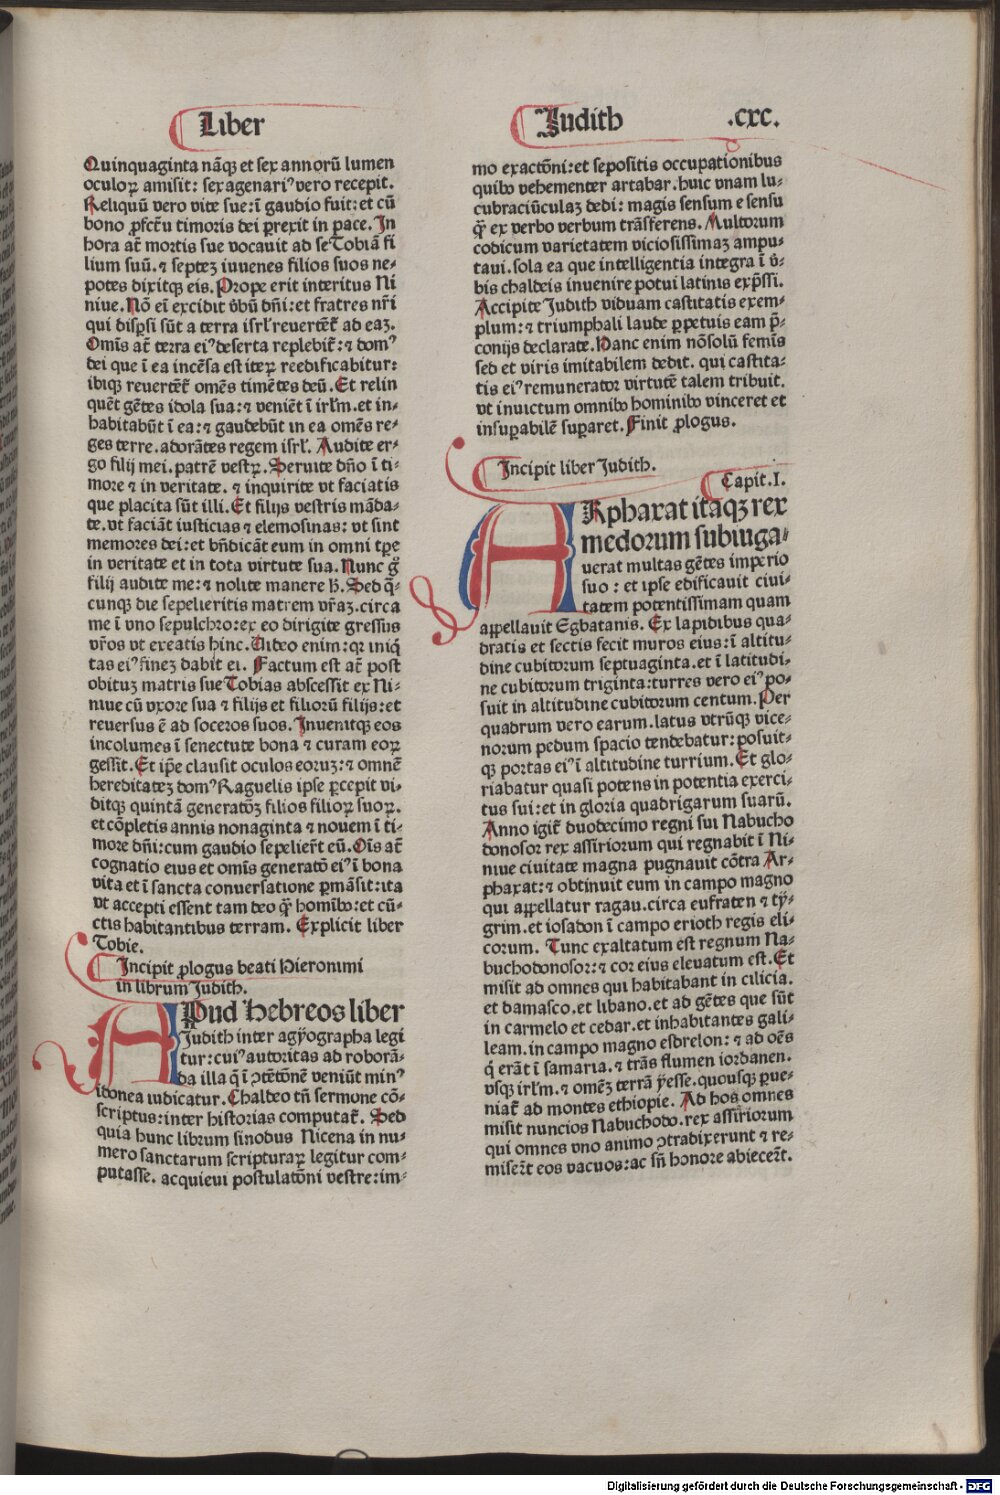 Liber
Judith
.cxc.
Quinquaginta nãqꝫ et sex annorũ lumen
oculoꝝ amisit: sexagenariꝰ vero recepit.
Reliquũ vero vite sue: ĩ gaudio fuit: et cũ
bono ꝓfct̃u timoris dei ꝑrexit in pace. In
hora at̃ mortis sue vocauit ad se Tobiã fi
lium suũ. ⁊ septeꝫ iuuenes filios suos ne⸗
potes dixitqꝫ eis. Prope erit interitus Ni
niue. Nõ eĩ excidit v̾bũ dñi: et fratres nr̃i
qui disꝑsi sũt a terra isrl̕ reuertẽt᷑ ad eaꝫ.
Omĩs at̃ terra eiꝰ deserta replebit᷑: ⁊ domꝰ
dei que ĩ ea incẽsa est iteꝝ reedificabitur:
ibiqꝫ reuertẽt᷑ omẽs timẽtes deũ. Et relin
quẽt gẽtes idola sua: ⁊ veniẽt ĩ irl̕m. et in⸗
habitabũt ĩ ea: ⁊ gaudebũt in ea omẽs re⸗
ges terre. adorãtes regem isrl̕. Audite er⸗
go filij mei. patrẽ vestꝝ. Seruite dño ĩ ti⸗
more ⁊ in veritate. ⁊ inquirite vt faciatis
que placita sũt illi. Et filijs vestris mãda⸗
te. vt faciãt iusticias ⁊ elemosinas: vt sint
memores dei: et bñdicãt eum in omni tꝑe
in veritate et in tota virtute sua. Nunc g̊
filij audite me: ⁊ nolite manere h̾. Sed q̃⸗
cunqꝫ die sepelieritis matrem vr̃aꝫ. circa
me ĩ vno sepulchro: ex eo dirigite gressus
vr̃os vt exeatis hinc. Uideo enim: qꝛ iniq̃
tas eiꝰ fineꝫ dabit ei. Factum est at̃ post
obituꝫ matris sue Tobias abscessit ex Ni⸗
niue cũ vxore sua ⁊ filijs et filiorũ filijs: et
reuersus ẽ ad soceros suos. Inuenitqꝫ eos
incolumes ĩ senectute bona ⁊ curam eoꝝ
gessit. Et ip̃e clausit oculos eoruꝫ: ⁊ omnẽ
hereditateꝫ domꝰ Raguelis ipse ꝑcepit vi⸗
ditqꝫ quintã generatõꝫ filios filioꝝ suoꝝ.
et cõpletis annis nonaginta ⁊ nouem ĩ ti⸗
more dñi: cum gaudio sepelier̃t eũ. Oĩs at̃
cognatio eius et omĩs generatõ eiꝰ ĩ bona
vita et ĩ sancta conuersatione ꝑmãsit: ita
vt accepti essent tam deo qm̃ homĩbꝫ: et cũ⸗
ctis habitantibus terram. Explicit liber
Tobie.
Incipit ꝓlogus beati Hieronimi
in librum Judith.
APud Hebreos liber
Judith inter agÿographa legi
tur: cuiꝰ autoritas ad roborã⸗
da illa q̃ ĩ ꝯtẽtõnẽ veniũt minꝰ
idonea iudicatur. Chaldeo tñ sermone cõ⸗
scriptus: inter historias computat᷑. Sed
quia hunc librum sinodus Nicena in nu⸗
mero sanctarum scripturaꝝ legitur com⸗
putasse. acquieui postulatõni vestre: im⸗
mo exactõni: et sepositis occupationibus
quibꝫ vehementer artabar. huic vnam lu⸗
cubraciũculaꝫ dedi: magis sensum e sensu
qm̃ ex verbo verbum trãsferens. Multorum
codicum varietatem viciosissimaꝫ ampu⸗
taui. sola ea que intelligentia integra ĩ v̾⸗
bis chaldeis inuenire potui latinis exp̃ssi.
Accipite Judith viduam castitatis exem⸗
plum: ⁊ triumphali laude ꝑpetuis eam p̃⸗
conijs declarate. Hanc enim nõsolũ femĩs
sed et viris imitabilem dedit. qui castita⸗
tis eiꝰ remunerator virtutẽ talem tribuit.
vt inuictum omnibꝫ hominibꝫ vinceret et
insuꝑabilẽ suꝑaret. Finit ꝓlogus.
Incipit liber Judith.
Capit. I.
ARphaxat itaqꝫ rex
medorum subiuga⸗
uerat multas gẽtes imperio
suo: et ipse edificauit ciui⸗
tatem potentissimam quam
appellauit Egbatanis. Ex lapidibus qua⸗
dratis et sectis fecit muros eius: ĩ altitu⸗
dine cubitorum septuaginta. et ĩ latitudi⸗
ne cubitorum triginta: turres vero eiꝰ po⸗
suit in altitudine cubitorum centum. Per
quadrum vero earum. latus vtrũqꝫ vice⸗
norum pedum spacio tendebatur: posuit⸗
qꝫ portas eiꝰ ĩ altitudine turrium. Et glo⸗
riabatur quasi potens in potentia exerci⸗
tus sui: et in gloria quadrigarum suarũ.
Anno igit᷑ duodecimo regni sui Nabucho
donosor rex assiriorum qui regnabit ĩ Ni⸗
niue ciuitate magna pugnauit cõtra Ar⸗
phaxat: ⁊ obtinuit eum in campo magno
qui appellatur ragau. circa eufraten ⁊ tÿ⸗
grim. et iosadon ĩ campo erioth regis eli⸗
corum. Tunc exaltatum est regnum Na⸗
buchodonosor: ⁊ cor eius eleuatum est. Et
misit ad omnes qui habitabant in cilicia.
et damasco. et libano. et ad gẽtes que sũt
in carmelo et cedar. et inhabitantes gali⸗
leam. in campo magno esdrelon: ⁊ ad oẽs
q̃ erãt ĩ samaria. ⁊ trãs flumen iordanen.
vsqꝫ irl̕m. ⁊ omẽꝫ terrã ÿesse. quousqꝫ ꝑue⸗
niat᷑ ad montes ethiopie. Ad hos omnes
misit nuncios Nabuchodo. rex assiriorum
qui omnes vno animo ꝯtradixerunt ⁊ re⸗
miser̃t eos vacuos: ac sñ honore abiecer̃t.
Digitalisierung gefördert durch die Deutsche Forschungsgemeinschaft - DFG